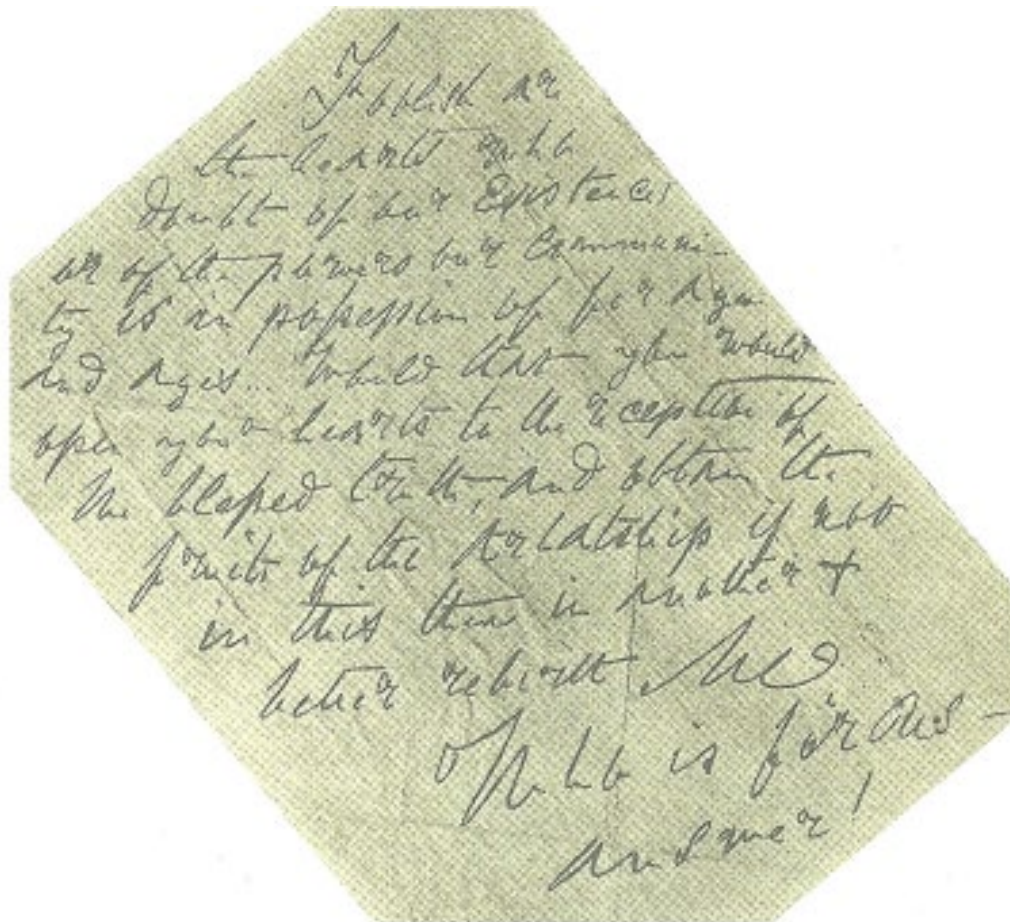 Foolish are
the hearts who
doubt of our Existence!
or of the powers our communi-
ty is in possession of for ages
and ages.. Would that you would
open your hearts to the reception of
the blessed truth, and obtain the
fruits of the Arhatship if not
in this then in another +
better rebirth
Who is for us —
answer!